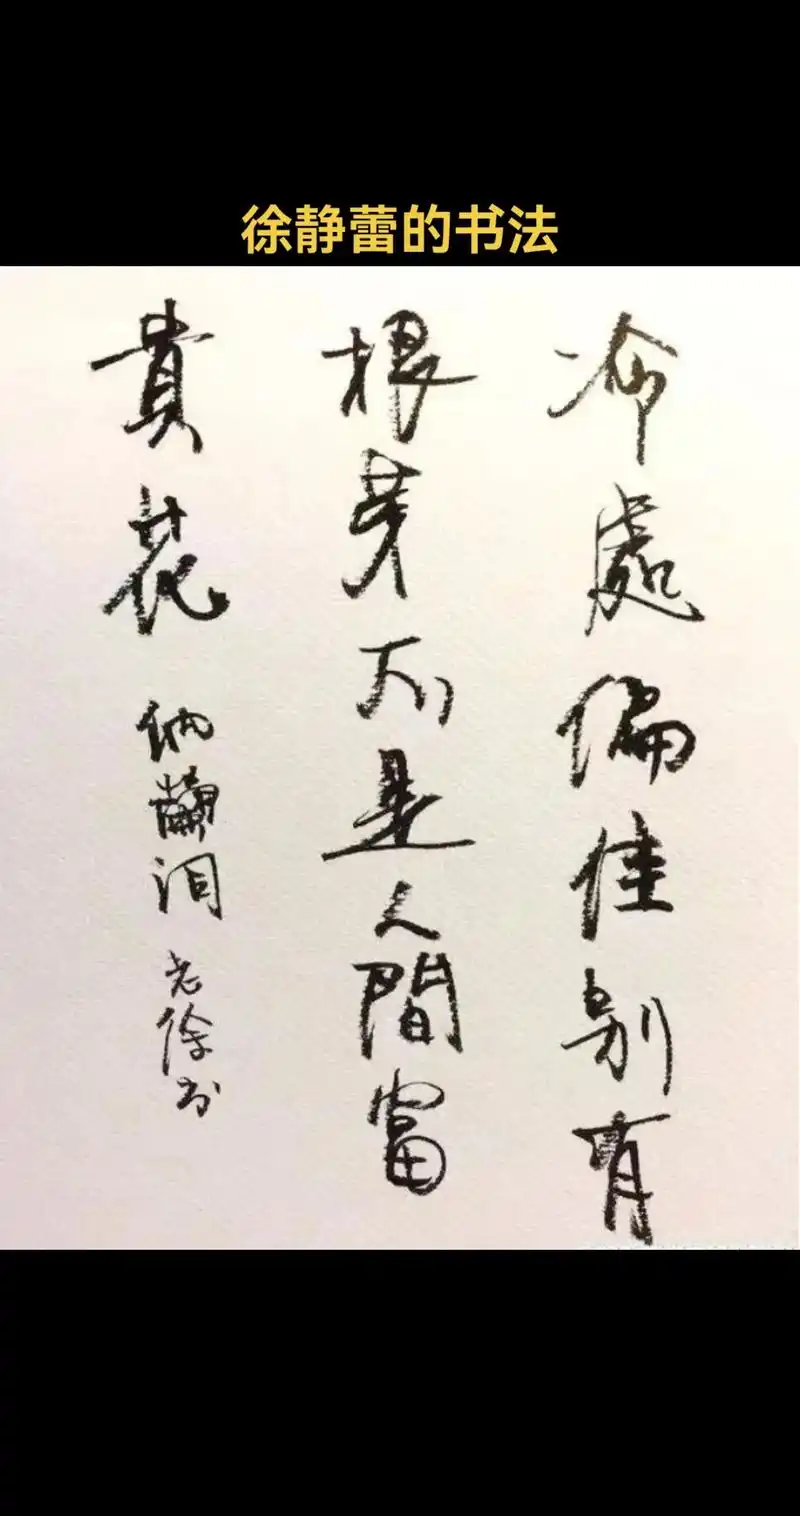 徐静蕾的书法
冷處偏佳别有
根芽不是人間富
貴花 纳蘭词 老徐书